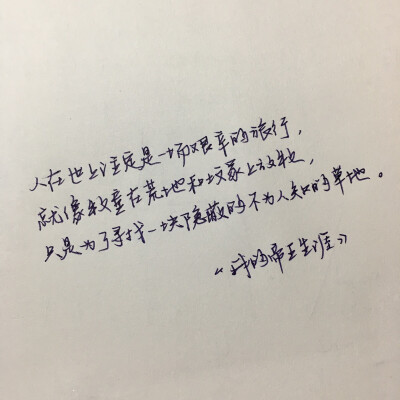 人在世上注定是一场艰辛的旅行，
就像牧童在荒地和坟冢上放牧，
只是为了寻找一块隐蔽的不为人知的草地。
《我的帝王生涯》